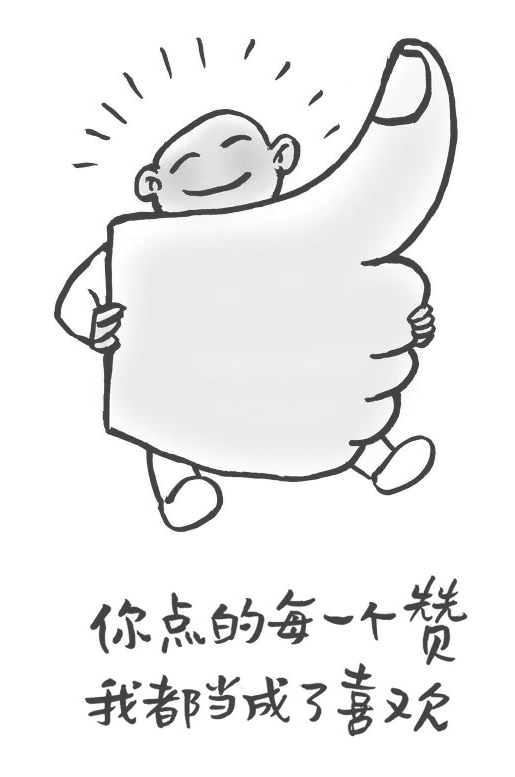 你点的每一个赞
我都当成了喜欢